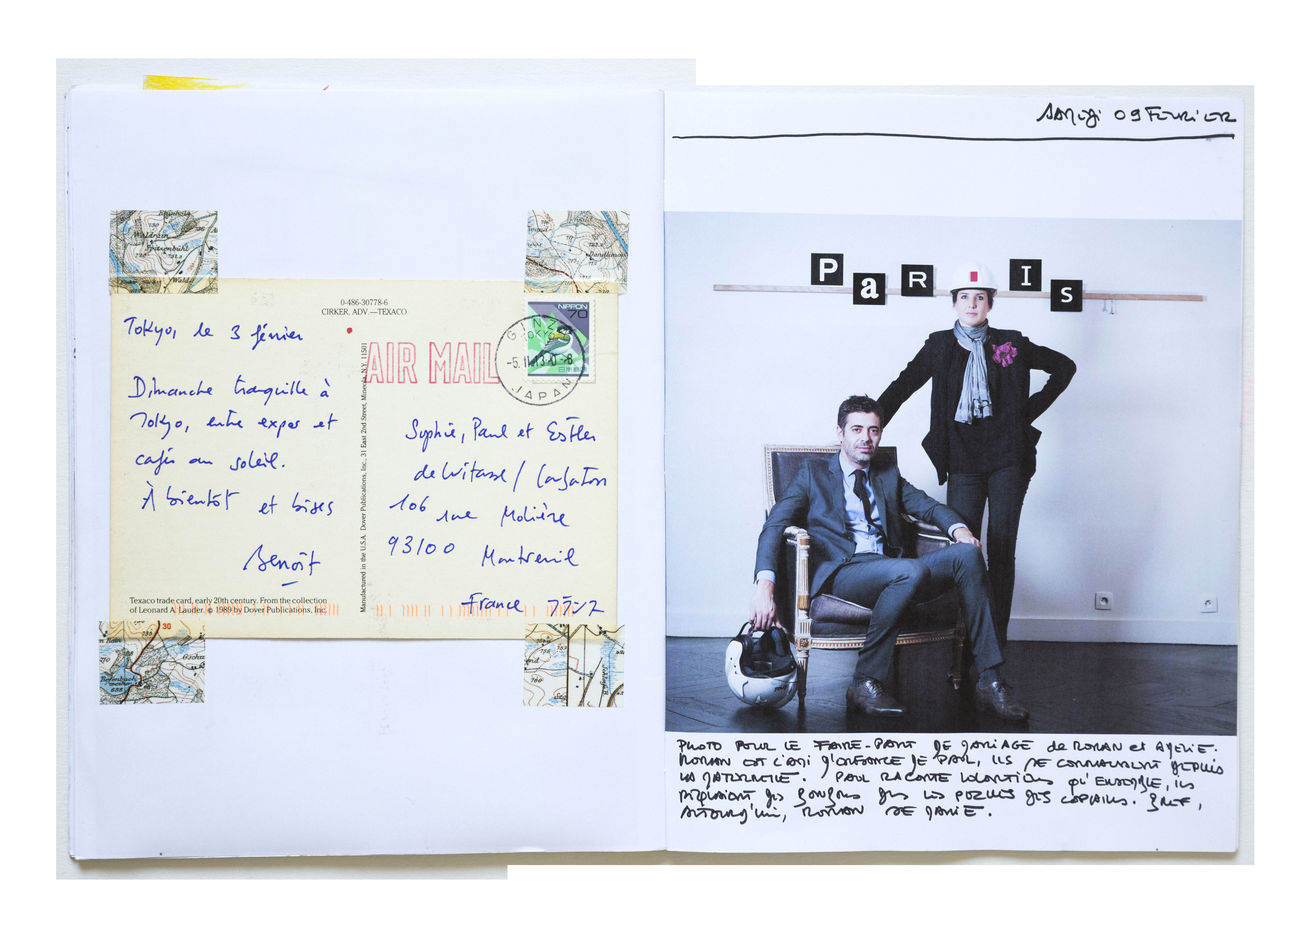 0-486-30778-6
CIRKER, ADV.—TEXACO
Tokyo, le 3 février
Dimanche tranquille à
Tokyo, entre expos et
cafés au soleil.
À bientôt et bises
Benoît
Texaco trade card, early 20th century. From the collection
of Leonard A. Lauder. © 1989 by Dover Publications, Inc.
Manufactured in the U.S.A. Dover Publications, Inc., 31 East 2nd Street, Mineola, N.Y. 11501
AIR MAIL
NIPPON
70
日本郵便
GINZA
TOKYO
JAPAN
Sophie, Paul et Esther
de Witasse /
106 rue Molière
93100 Montreuil
France
Waldrain
Spitzenbühl
Wald
30
SAMEDI 09 FEVRIER
PaRIs
PHOTO POUR LE FAIRE-PART DE MARIAGE de ROMAN et AMELIE.
ROMAN EST L'AMI D'ENFANCE DE PAUL, ILS SE CONNAISSENT DEPUIS
LA MATERNELLE. PAUL RACONTE VOLONTIERS QU'ENSEMBLE, ILS
PIQUAIENT DES BONBONS DES LES POCHES DES COPAINS. BREF,
AUJOURD'HUI, ROMAN SE MARIE.